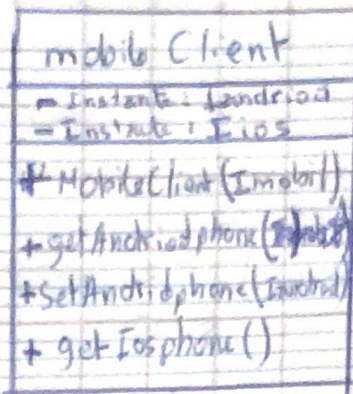 mobile Client
- Instante : Iandriod
- Instate : Iios
+ MobileClient(Imobil)
+ getAndriodphone(
+ SetAndridphone(Iandriod)
+ getIosphone()